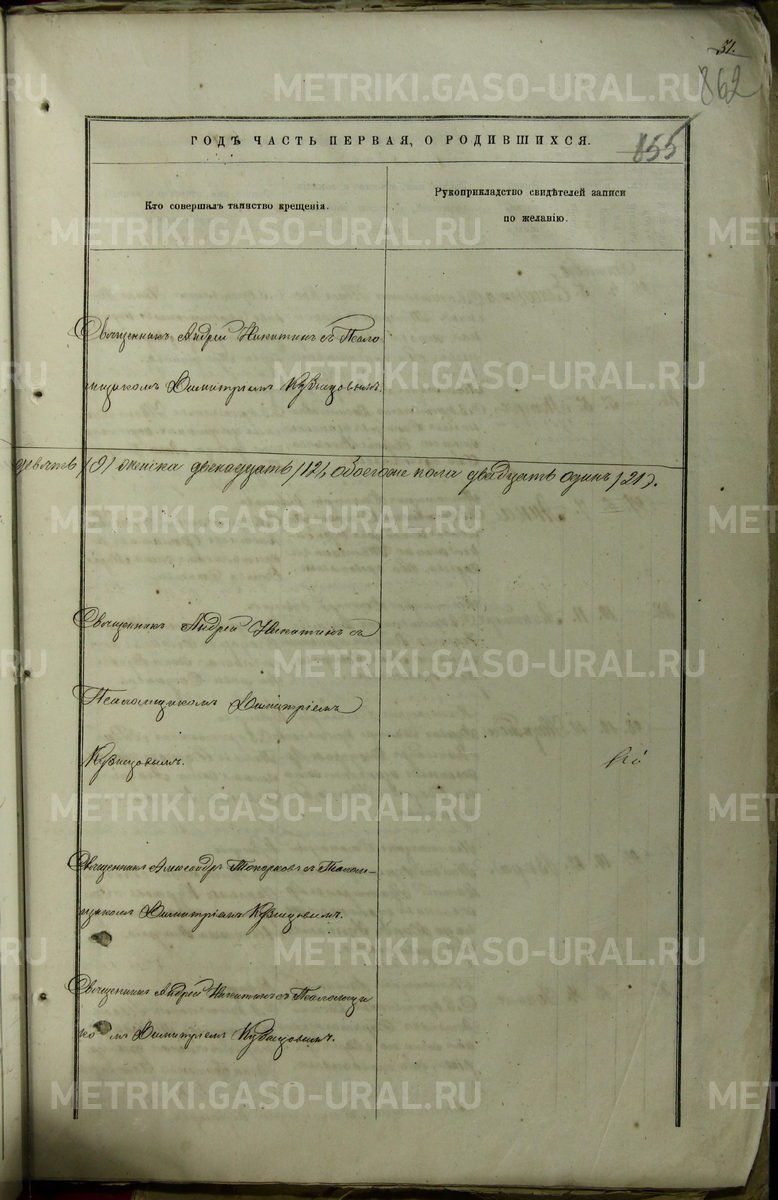 51.
862
ГОДЪ ЧАСТЬ ПЕРВАЯ, О РОДИВШИХСЯ.
855
Кто совершалъ таинство крещенія.
Рукоприкладство свидѣтелей записи
по желанію.
Священникъ Андрей Никитинъ съ Псало
мщикомъ Димитріемъ Кузнецовымъ.
девять (9) женска двенадцать (12), обоегоже пола двадцать одинъ (21).
Священникъ Андрей Никитинъ съ
Псаломщикомъ Димитріемъ
Кузнецовымъ.
Священникъ Александръ Топорковъ съ Псалом-
щикомъ Димитріемъ Кузнецовымъ.
Священникъ Андрей Никитинъ съ Псаломщи
комъ Димитріемъ Кузнецовымъ.
METRIKI.GASO-URAL.RU